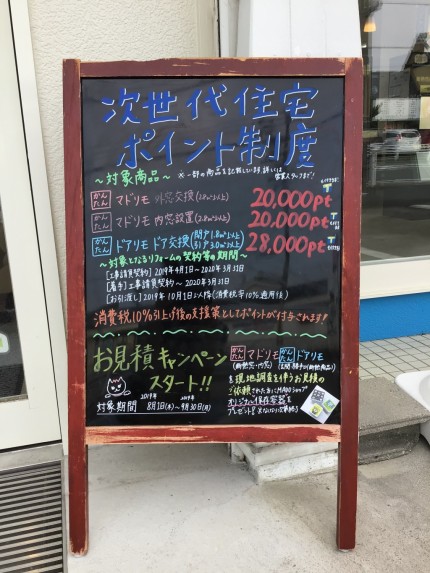 次世代住宅
ポイント制度
～対象商品～ ※一部の商品を記載しています。詳しくは
営業スタッフまで!
かんたん マドリモ 外窓交換(2.8㎡以上) 20,000pt
かんたん マドリモ 内窓設置(2.8㎡以上) 20,000pt
かんたん ドアリモ ドア交換 (開戸1.8㎡以上 引戸3.0㎡以上) 28,000pt
～対象となるリフォームの契約等の期間～
[工事請負契約] 2019年4月1日～2020年3月31日
[着手]工事請負契約～2020年3月31日
[お引渡し] 2019年10月1日以降(消費税率10%適用後)
消費税10%引上げ後の支援策としてポイントが付与されます!
お見積キャンペーン
スタート!!
かんたん マドリモ かんたん ドアリモ
を現地調査を伴うお見積の
ご依頼された方にMADOショップ
オリジナル保存容器を
プレゼント!!
対象期間 2019年 8月1日(木)～2019年 9月30日(月)